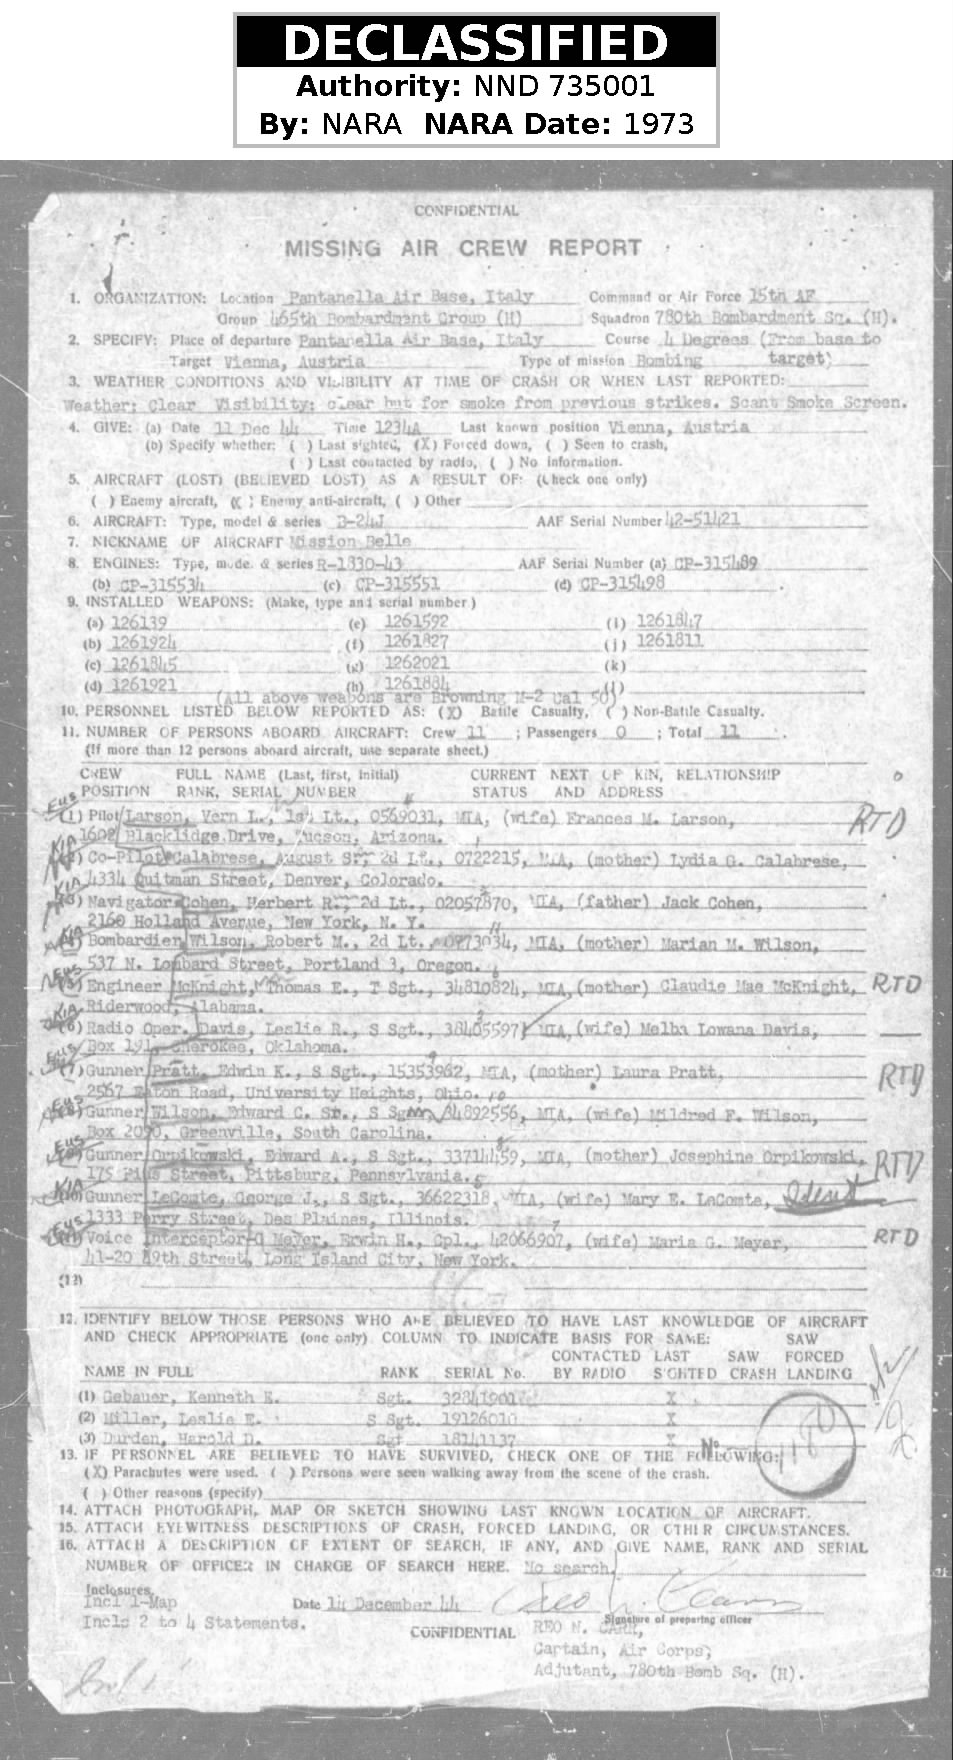 DECLASSIFIED
Authority: NND 735001
By: NARA NARA Date: 1973
CONFIDENTIAL
MISSING AIR CREW REPORT
1. ORGANIZATION: Location Pantanella Air Base, Italy Command or Air Force 15th AF
Group 465th Bombardment Group (H) Squadron 780th Bombardment Sq. (H).
2. SPECIFY: Place of departure Pantanella Air Base, Italy Course 4 Degrees (From base to
Target Vienna, Austria Type of mission Bombing target)
3. WEATHER CONDITIONS AND VISIBILITY AT TIME OF CRASH OR WHEN LAST REPORTED:
Weather: Clear Visibility: clear but for smoke from previous strikes. Scant Smoke Screen.
4. GIVE: (a) Date 11 Dec 44 Time 1234A Last known position Vienna, Austria
(b) Specify whether: ( ) Last sighted, (X) Forced down, ( ) Seen to crash,
( ) Last contacted by radio, ( ) No information.
5. AIRCRAFT (LOST) (BELIEVED LOST) AS A RESULT OF: (Check one only)
( ) Enemy aircraft, (X) Enemy anti-aircraft, ( ) Other
6. AIRCRAFT: Type, model & series B-24J AAF Serial Number 42-51421
7. NICKNAME OF AIRCRAFT Mission Belle
8. ENGINES: Type, mode. & series R-1830-43 AAF Serial Number (a) CP-315489
(b) CP-315534 (c) CP-315551 (d) CP-315498
9. INSTALLED WEAPONS: (Make, type and serial number)
(a) 126139 (e) 1261592 (i) 1261847
(b) 1261924 (f) 1261827 (j) 1261811
(c) 1261845 (g) 1262021 (k)
(d) 1261921 (h) 1261884 (l)
(All above weabons are Browning M-2 Cal 50)
10. PERSONNEL LISTED BELOW REPORTED AS: (X) Battle Casualty, ( ) Non-Battle Casualty.
11. NUMBER OF PERSONS ABOARD AIRCRAFT: Crew 11 ; Passengers 0 ; Total 11
(If more than 12 persons aboard aircraft, use separate sheet.)
CREW FULL NAME (Last, first, initial) CURRENT NEXT OF KIN, RELATIONSHIP
POSITION RANK, SERIAL NUMBER STATUS AND ADDRESS
Eus (1) Pilot Larson, Vern L., 1st Lt., 0569031, MIA, (wife) Frances M. Larson, RTD
1602 Blacklidge Drive, Tucson, Arizona.
KIA (2) Co-Pilot Calabrese, August Sr., 2d Lt., 0722215, MIA, (mother) Lydia G. Calabrese,
4334 Quitman Street, Denver, Colorado.
KIA (3) Navigator Cohen, Herbert R., 2d Lt., 02057870, MIA, (father) Jack Cohen,
2160 Holland Avenue, New York, N. Y.
KIA (4) Bombardier Wilson, Robert M., 2d Lt., 0773034, MIA, (mother) Marian M. Wilson,
537 N. Lombard Street, Portland 3, Oregon.
Eus (5) Engineer McKnight, Thomas E., T Sgt., 34810824, MIA, (mother) Claudie Mae McKnight, RTD
Riderwood, Alabama.
KIA (6) Radio Oper. Davis, Leslie R., S Sgt., 38405597, MIA, (wife) Melba Lowana Davis,
Box 191, Cherokee, Oklahoma.
Eus (7) Gunner Pratt, Edwin K., S Sgt., 15353962, MIA, (mother) Laura Pratt, RTD
2567 Eaton Road, University Heights, Ohio.
Eus (8) Gunner Wilson, Edward C. Sr., S Sgt., 34892556, MIA, (wife) Mildred F. Wilson,
Box 2090, Greenville, South Carolina.
Eus (9) Gunner Orpikowski, Edward A., S Sgt., 33714459, MIA, (mother) Josephine Orpikowski, RTD
175 Pius Street, Pittsburg, Pennsylvania.
KIA (10) Gunner LeComte, George J., S Sgt., 36622318, MIA, (wife) Mary E. LeComte, Ident
1333 Perry Street, Des Plaines, Illinois.
Eus (11) Voice Interceptor-G Meyer, Erwin H., Cpl., 42066907, (wife) Maria G. Meyer, RTD
41-20 49th Street, Long Island City, New York.
(12)
12. IDENTIFY BELOW THOSE PERSONS WHO ARE BELIEVED TO HAVE LAST KNOWLEDGE OF AIRCRAFT
AND CHECK APPROPRIATE (one only) COLUMN TO INDICATE BASIS FOR SAME: SAW
CONTACTED LAST SAW FORCED
NAME IN FULL RANK SERIAL No. BY RADIO SIGHTED CRASH LANDING
(1) Gebauer, Kenneth E. Sgt. 32841901 X
(2) Miller, Leslie E. S Sgt. 19126010 X
(3) Durden, Harold D. Sgt 18141137 X
13. IF PERSONNEL ARE BELIEVED TO HAVE SURVIVED, CHECK ONE OF THE FOLLOWING:
(X) Parachutes were used. ( ) Persons were seen walking away from the scene of the crash.
( ) Other reasons (specify)
14. ATTACH PHOTOGRAPH, MAP OR SKETCH SHOWING LAST KNOWN LOCATION OF AIRCRAFT.
15. ATTACH EYEWITNESS DESCRIPTIONS OF CRASH, FORCED LANDING, OR OTHER CIRCUMSTANCES.
16. ATTACH A DESCRIPTION OF EXTENT OF SEARCH, IF ANY, AND GIVE NAME, RANK AND SERIAL
NUMBER OF OFFICER IN CHARGE OF SEARCH HERE. No search.
Inclosures.
Incl 1-Map Date 14 December 44
Incls 2 to 4 Statements. Signature of preparing officer
CONFIDENTIAL REO N. CARR,
Captain, Air Corps,
Adjutant, 780th Bomb Sq. (H).